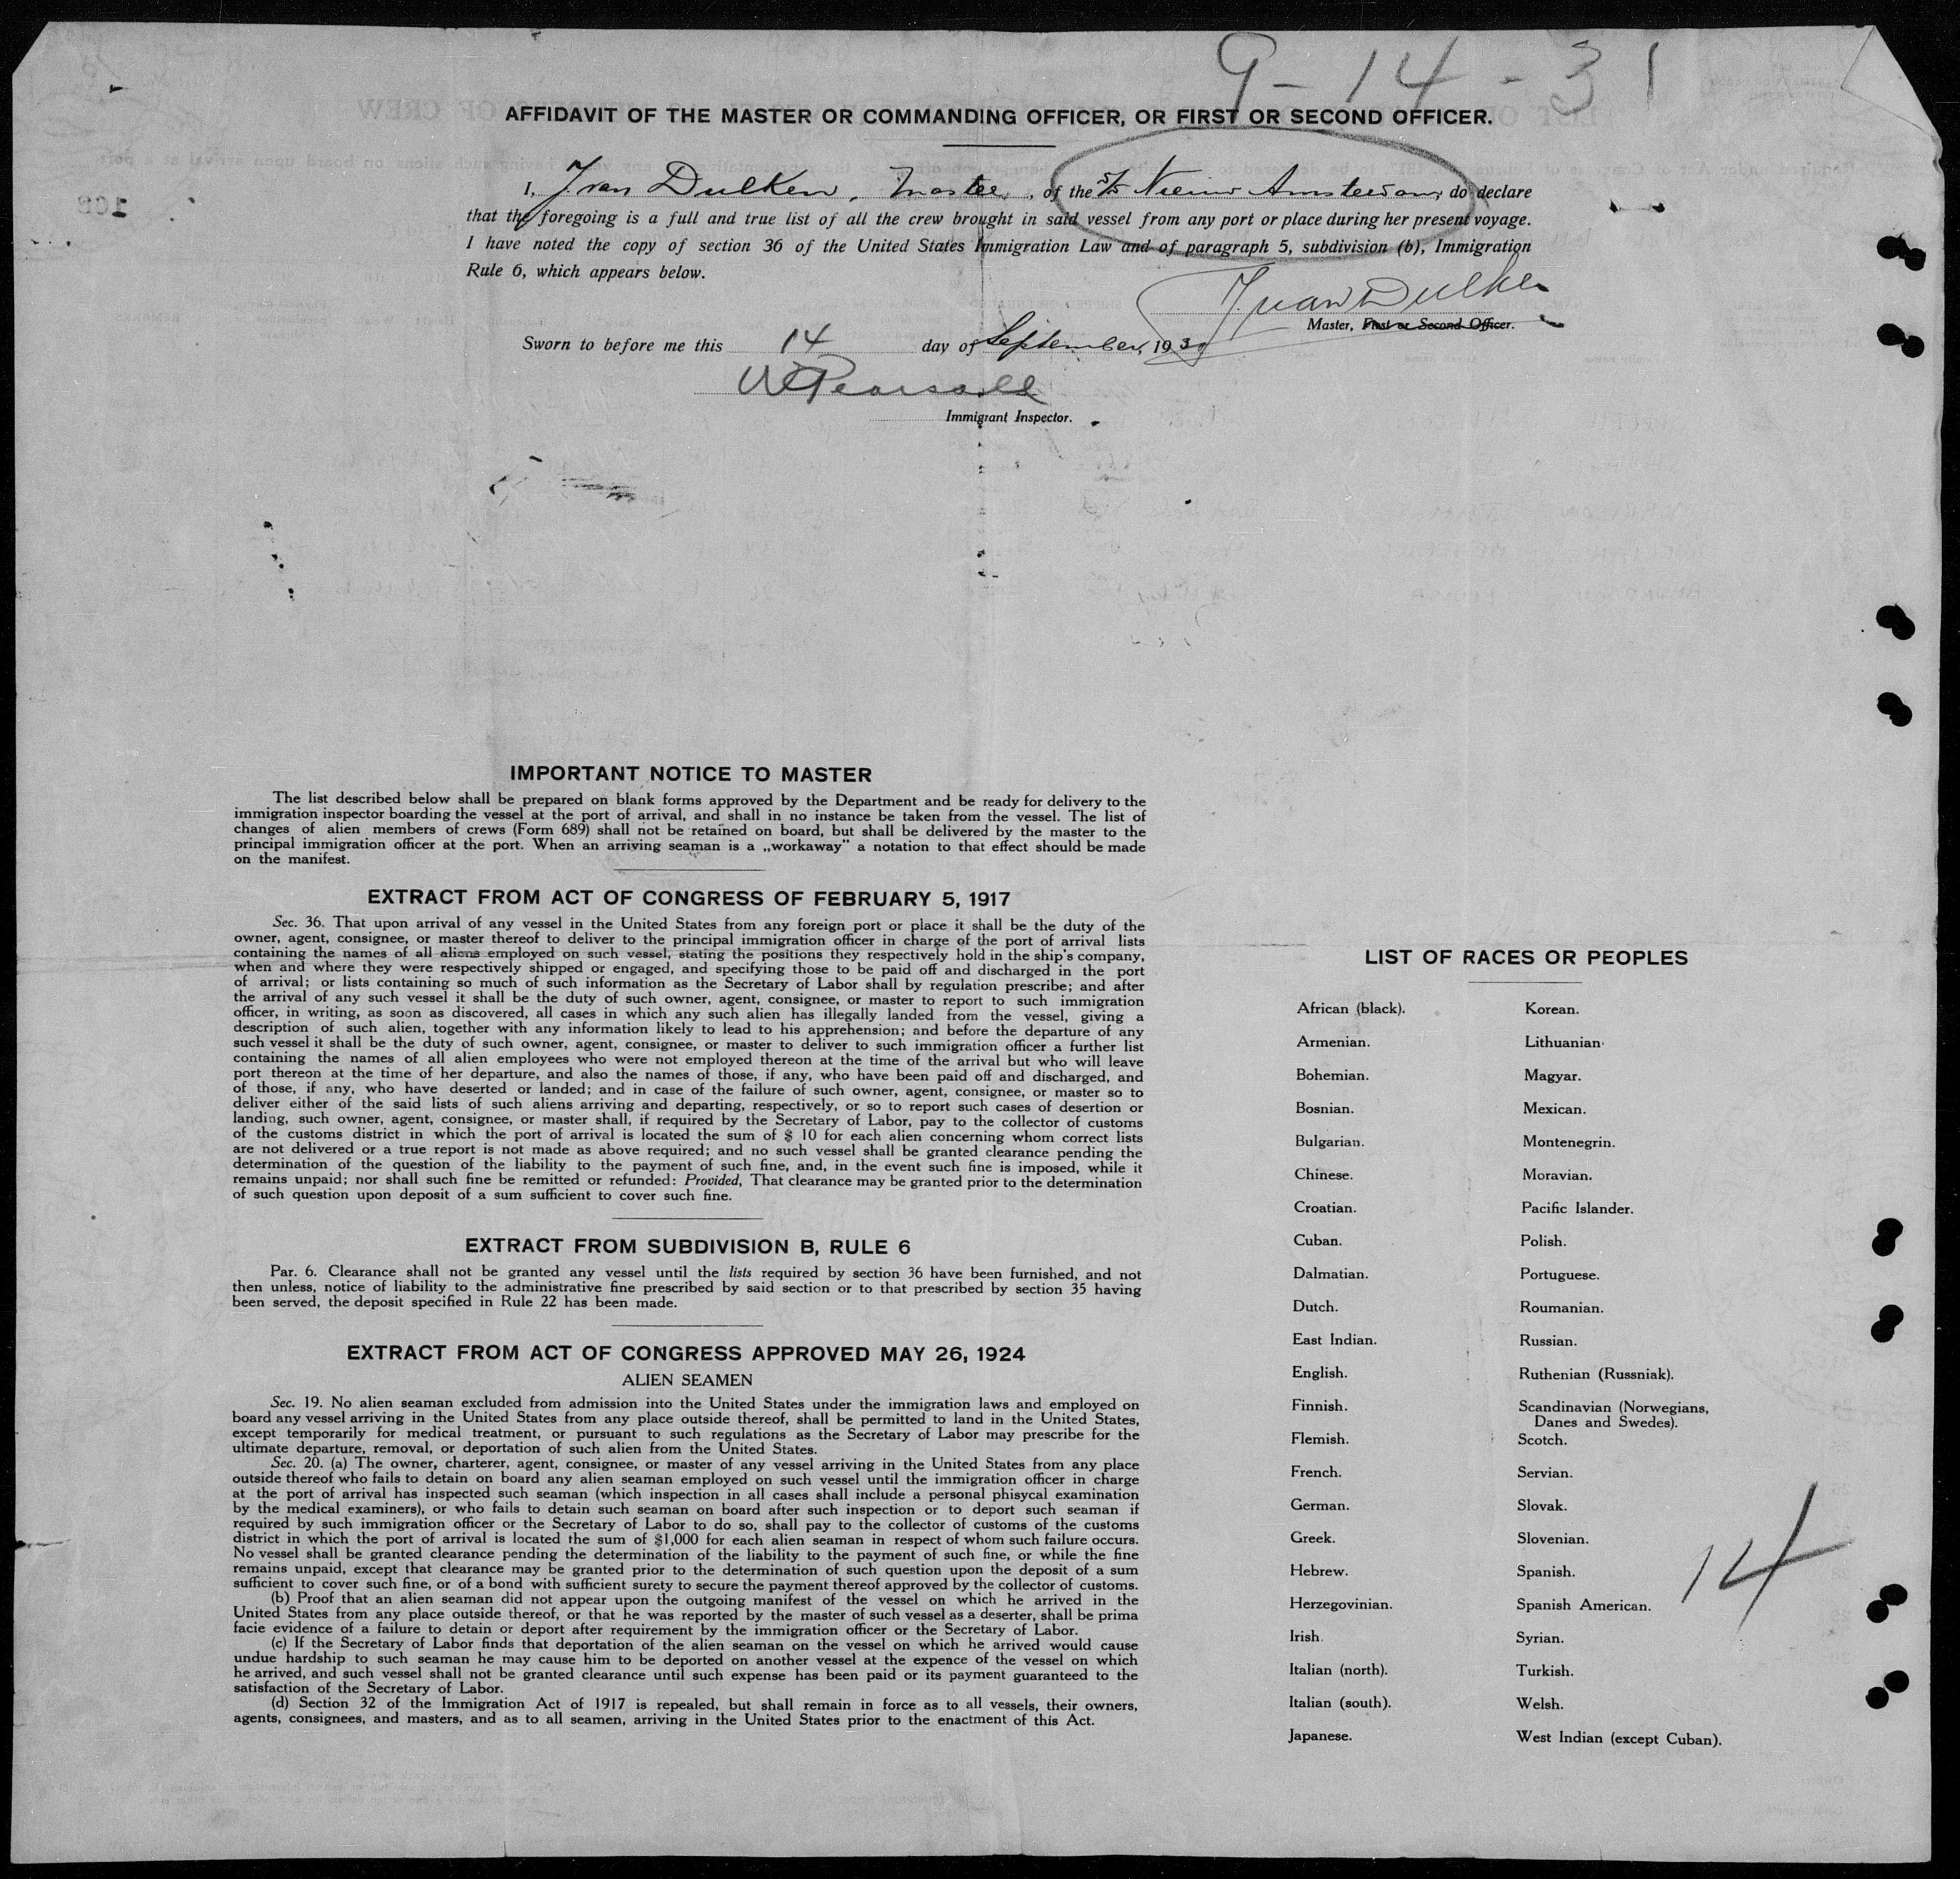 9-14-31
AFFIDAVIT OF THE MASTER OR COMMANDING OFFICER, OR FIRST OR SECOND OFFICER.
I, J van Dulken, Master, of the S/S Nieuw Amsterdam, do declare
that the foregoing is a full and true list of all the crew brought in said vessel from any port or place during her present voyage.
I have noted the copy of section 36 of the United States Immigration Law and of paragraph 5, subdivision (b), Immigration
Rule 6, which appears below.
J van Dulken
Master, First or Second Officer.
Sworn to before me this 14 day of September, 193
Pearsall
Immigrant Inspector.
IMPORTANT NOTICE TO MASTER
The list described below shall be prepared on blank forms approved by the Department and be ready for delivery to the
immigration inspector boarding the vessel at the port of arrival, and shall in no instance be taken from the vessel. The list of
changes of alien members of crews (Form 689) shall not be retained on board, but shall be delivered by the master to the
principal immigration officer at the port. When an arriving seaman is a „workaway” a notation to that effect should be made
on the manifest.
EXTRACT FROM ACT OF CONGRESS OF FEBRUARY 5, 1917
Sec. 36. That upon arrival of any vessel in the United States from any foreign port or place it shall be the duty of the
owner, agent, consignee, or master thereof to deliver to the principal immigration officer in charge of the port of arrival lists
containing the names of all aliens employed on such vessel, stating the positions they respectively hold in the ship's company,
when and where they were respectively shipped or engaged, and specifying those to be paid off and discharged in the port
of arrival; or lists containing so much of such information as the Secretary of Labor shall by regulation prescribe; and after
the arrival of any such vessel it shall be the duty of such owner, agent, consignee, or master to report to such immigration
officer, in writing, as soon as discovered, all cases in which any such alien has illegally landed from the vessel, giving a
description of such alien, together with any information likely to lead to his apprehension; and before the departure of any
such vessel it shall be the duty of such owner, agent, consignee, or master to deliver to such immigration officer a further list
containing the names of all alien employees who were not employed thereon at the time of the arrival but who will leave
port thereon at the time of her departure, and also the names of those, if any, who have been paid off and discharged, and
of those, if any, who have deserted or landed; and in case of the failure of such owner, agent, consignee, or master so to
deliver either of the said lists of such aliens arriving and departing, respectively, or so to report such cases of desertion or
landing, such owner, agent, consignee, or master shall, if required by the Secretary of Labor, pay to the collector of customs
of the customs district in which the port of arrival is located the sum of $ 10 for each alien concerning whom correct lists
are not delivered or a true report is not made as above required; and no such vessel shall be granted clearance pending the
determination of the question of the liability to the payment of such fine, and, in the event such fine is imposed, while it
remains unpaid; nor shall such fine be remitted or refunded: Provided, That clearance may be granted prior to the determination
of such question upon deposit of a sum sufficient to cover such fine.
EXTRACT FROM SUBDIVISION B, RULE 6
Par. 6. Clearance shall not be granted any vessel until the lists required by section 36 have been furnished, and not
then unless, notice of liability to the administrative fine prescribed by said section or to that prescribed by section 35 having
been served, the deposit specified in Rule 22 has been made.
EXTRACT FROM ACT OF CONGRESS APPROVED MAY 26, 1924
ALIEN SEAMEN
Sec. 19. No alien seaman excluded from admission into the United States under the immigration laws and employed on
board any vessel arriving in the United States from any place outside thereof, shall be permitted to land in the United States,
except temporarily for medical treatment, or pursuant to such regulations as the Secretary of Labor may prescribe for the
ultimate departure, removal, or deportation of such alien from the United States.
Sec. 20. (a) The owner, charterer, agent, consignee, or master of any vessel arriving in the United States from any place
outside thereof who fails to detain on board any alien seaman employed on such vessel until the immigration officer in charge
at the port of arrival has inspected such seaman (which inspection in all cases shall include a personal phisycal examination
by the medical examiners), or who fails to detain such seaman on board after such inspection or to deport such seaman if
required by such immigration officer or the Secretary of Labor to do so, shall pay to the collector of customs of the customs
district in which the port of arrival is located the sum of $1,000 for each alien seaman in respect of whom such failure occurs.
No vessel shall be granted clearance pending the determination of the liability to the payment of such fine, or while the fine
remains unpaid, except that clearance may be granted prior to the determination of such question upon the deposit of a sum
sufficient to cover such fine, or of a bond with sufficient surety to secure the payment thereof approved by the collector of customs.
(b) Proof that an alien seaman did not appear upon the outgoing manifest of the vessel on which he arrived in the
United States from any place outside thereof, or that he was reported by the master of such vessel as a deserter, shall be prima
facie evidence of a failure to detain or deport after requirement by the immigration officer or the Secretary of Labor.
(c) If the Secretary of Labor finds that deportation of the alien seaman on the vessel on which he arrived would cause
undue hardship to such seaman he may cause him to be deported on another vessel at the expence of the vessel on which
he arrived, and such vessel shall not be granted clearance until such expense has been paid or its payment guaranteed to the
satisfaction of the Secretary of Labor.
(d) Section 32 of the Immigration Act of 1917 is repealed, but shall remain in force as to all vessels, their owners,
agents, consignees, and masters, and as to all seamen, arriving in the United States prior to the enactment of this Act.
LIST OF RACES OR PEOPLES
African (black).
Armenian.
Bohemian.
Bosnian.
Bulgarian.
Chinese.
Croatian.
Cuban.
Dalmatian.
Dutch.
East Indian.
English.
Finnish.
Flemish.
French.
German.
Greek.
Hebrew.
Herzegovinian.
Irish.
Italian (north).
Italian (south).
Japanese.
Korean.
Lithuanian.
Magyar.
Mexican.
Montenegrin.
Moravian.
Pacific Islander.
Polish.
Portuguese.
Roumanian.
Russian.
Ruthenian (Russniak).
Scandinavian (Norwegians,
Danes and Swedes).
Scotch.
Servian.
Slovak.
Slovenian.
Spanish.
Spanish American.
Syrian.
Turkish.
Welsh.
West Indian (except Cuban).
14